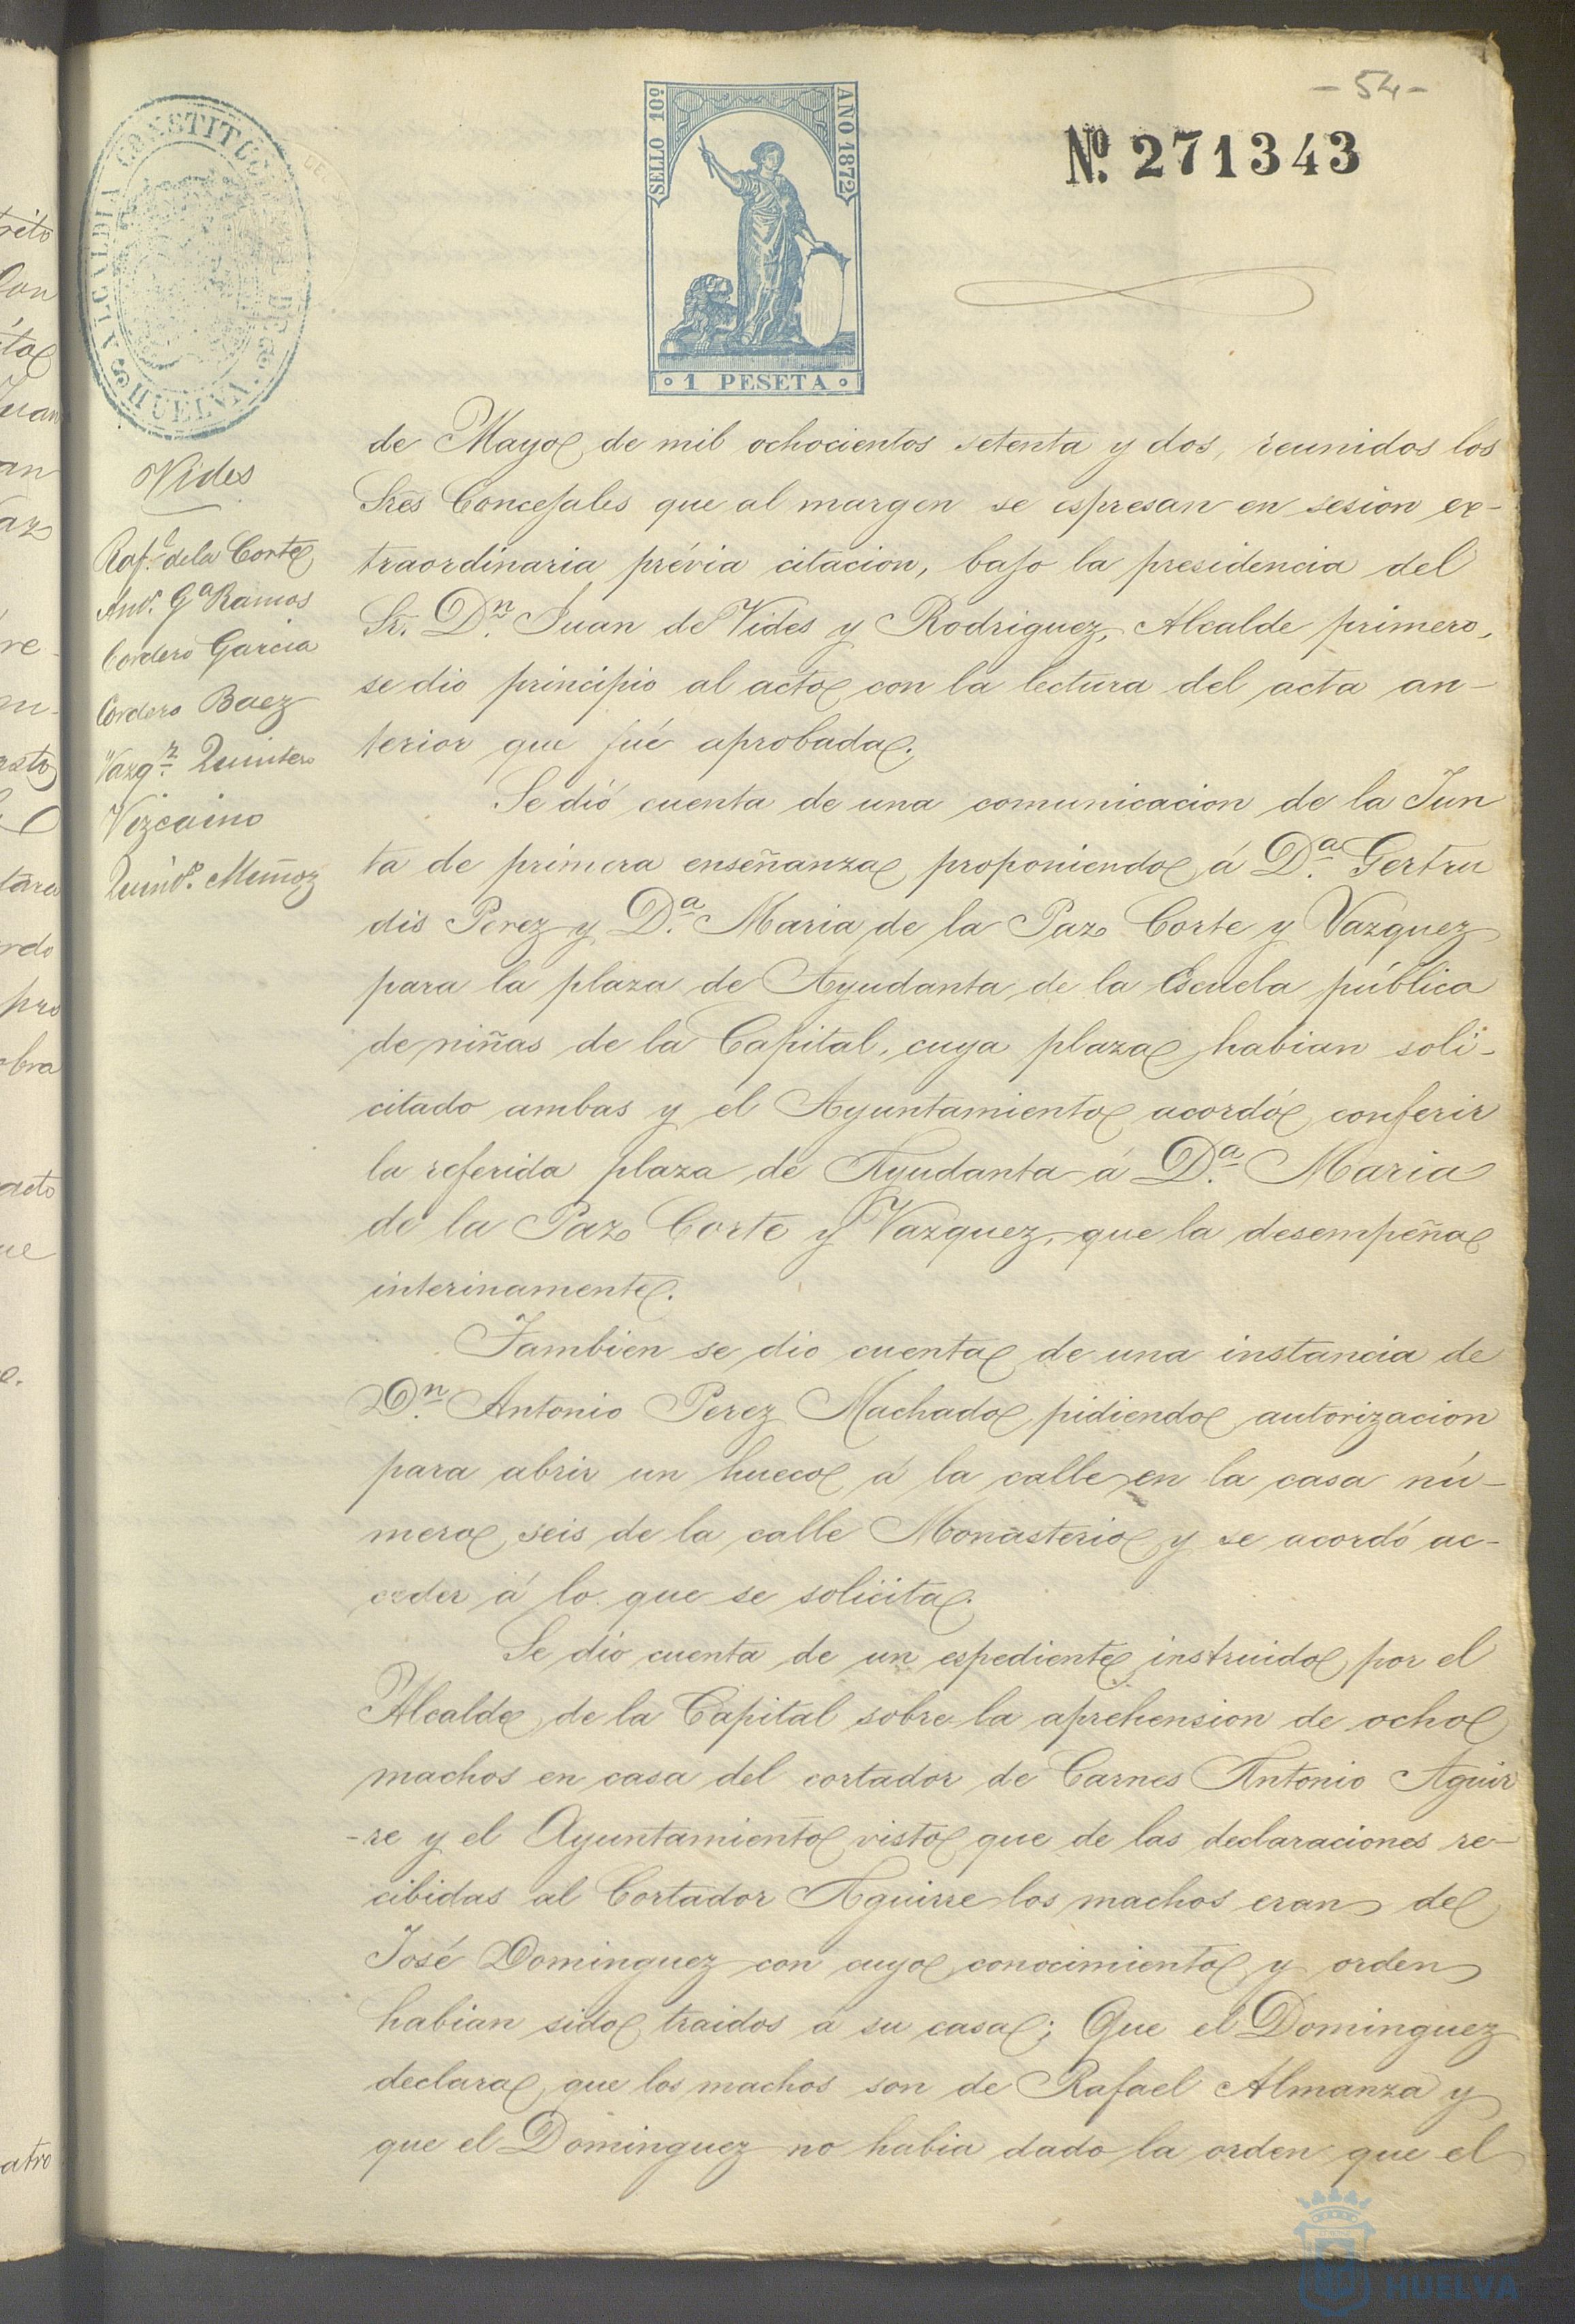 - 54 -
Nº. 271343
SELLO 10º
AÑO 1872
1 PESETA
ALCALDIA CONSTITUCIONAL DE
HUELVA
Vides
Raf.l de la Corte
And.s G.a Ramos
Cordero Garcia
Cordero Baez
Vazq.z Quintero
Vizcaino
Quind.o Muñoz
de Mayo de mil ochocientos setenta y dos, reunidos los
Sres Concejales que al margen se espresan en sesion ex-
traordinaria prévia citacion, bajo la presidencia del
Sr. D.n Juan de Vides y Rodriguez, Alcalde primero,
se dio principio al acto con la lectura del acta an-
terior que fué aprobada.
Se dió cuenta de una comunicacion de la Jun
ta de primera enseñanza proponiendo á D.a Gertru
dis Perez y D.a Maria de la Paz Corte y Vazquez
para la plaza de Ayudanta de la Escuela pública
de niñas de la Capital, cuya plaza habian soli-
citado ambas y el Ayuntamiento acordó conferir
la referida plaza de Ayudanta á D.a Maria
de la Paz Corte y Vazquez, que la desempeña
interinamente.
Tambien se dio cuenta de una instancia de
D.n Antonio Perez Machado pidiendo autorizacion
para abrir un hueco á la calle en la casa nú-
mero seis de la calle Monasterio y se acordó ac-
ceder á lo que se solicita.
Se dio cuenta de un espediente instruido por el
Alcalde de la Capital sobre la aprehension de ocho
machos en casa del cortador de Carnes Antonio Aguir
-re y el Ayuntamiento visto que de las declaraciones re-
cibidas al Cortador Aguirre los machos eran de
José Dominguez con cuyo conocimiento y orden
habian sido traidos á su casa; Que el Dominguez
declara que los machos son de Rafael Almanza y
que el Dominguez no habia dado la orden que el
HUELVA